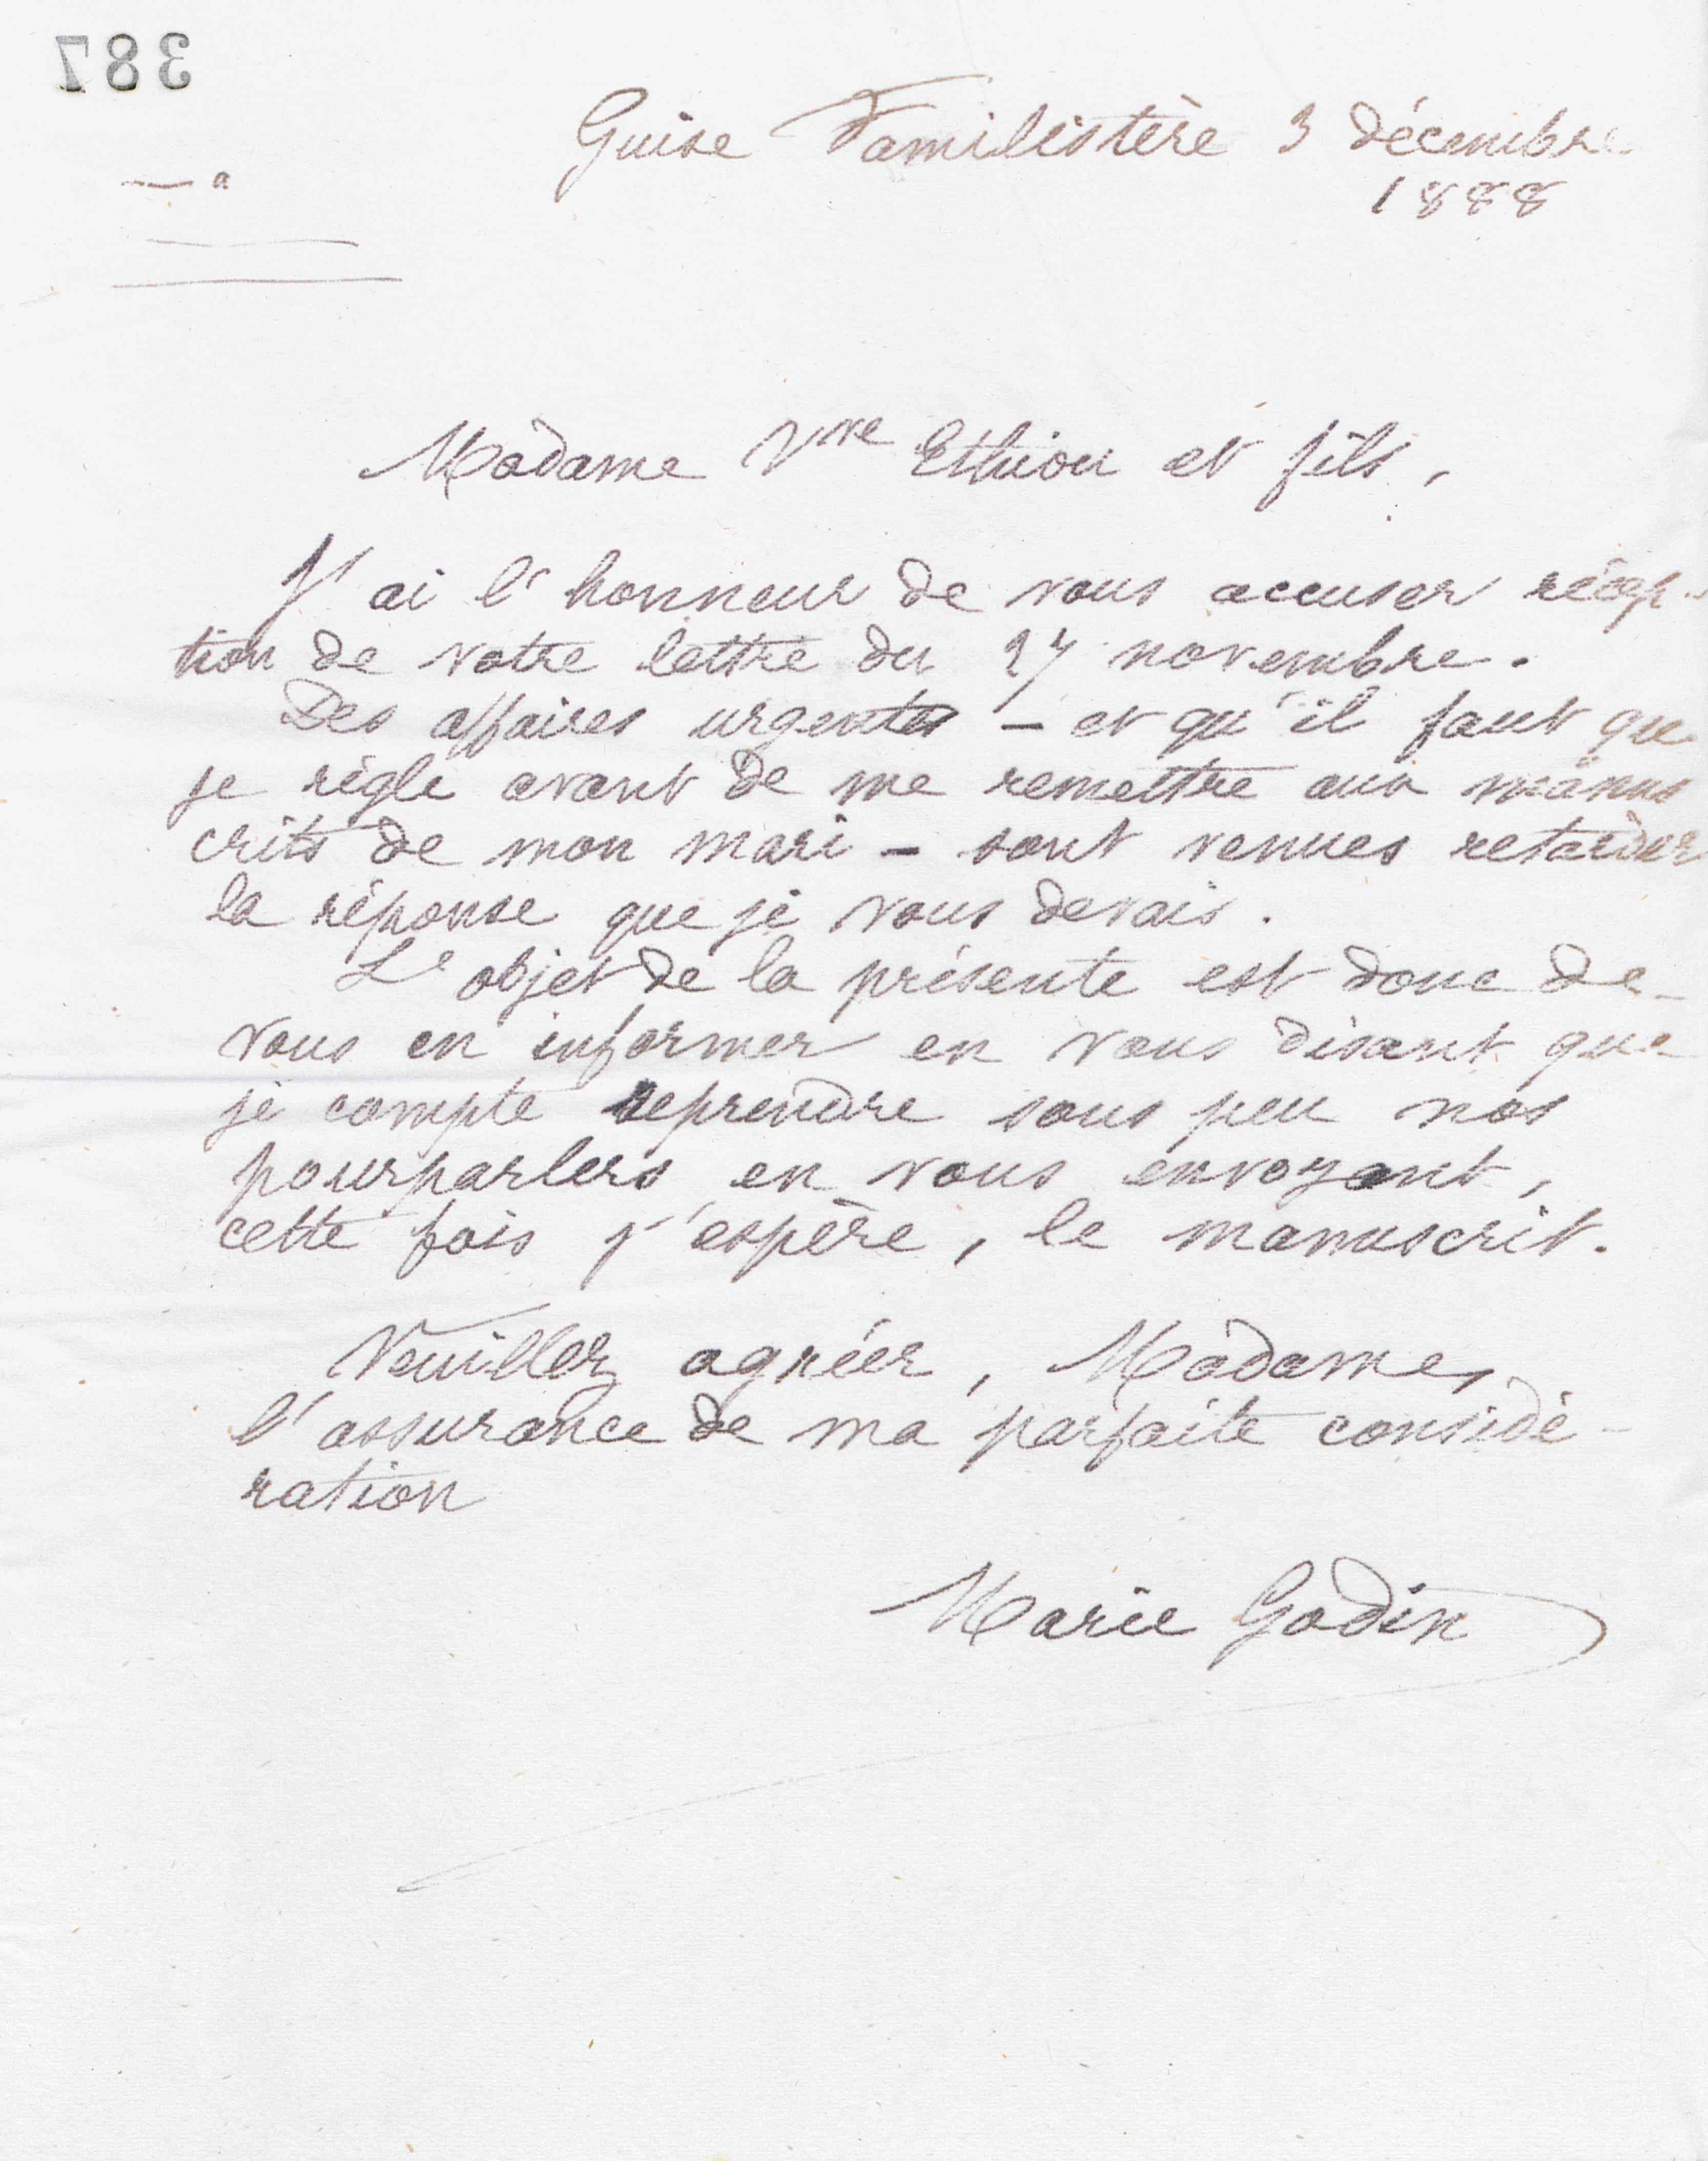 387
Guise Familistère 3 décembre
1888
Madame Vve Ethiou et fils,
J'ai l'honneur de vous accuser récep-
tion de votre lettre du 27 novembre.
Des affaires urgentes - et qu'il faut que
je règle avant de me remettre aux manus
crits de mon mari - sont venues retarder
la réponse que je vous devais.
L'objet de la présente est donc de
vous en informer en vous disant que
je compte reprendre sous peu nos
pourparlers en vous envoyant,
cette fois j'espère, le manuscrit.
Veuillez agréer, Madame,
l'assurance de ma parfaite considé-
ration
Marie Godin